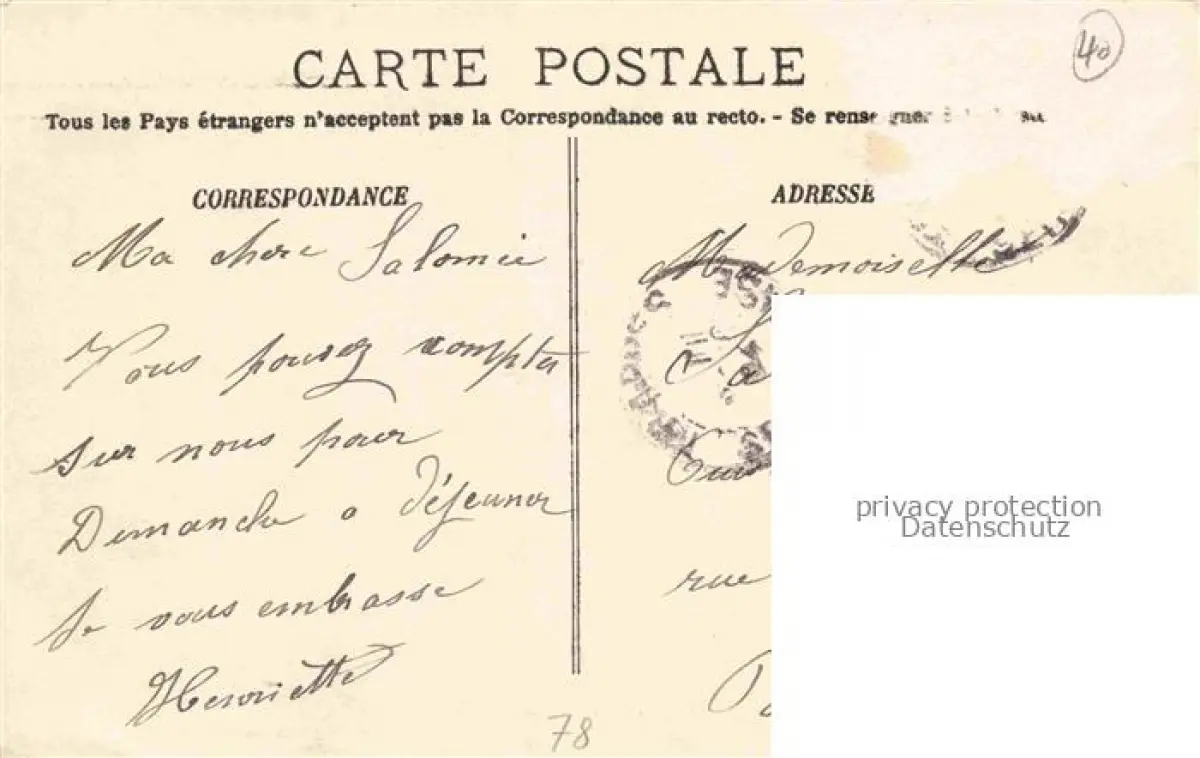 40
CARTE POSTALE
Tous les Pays étrangers n'acceptent pas la Correspondance au recto. - Se renseigner
CORRESPONDANCE
ADRESSE
Ma chere Salomée
Vous pouvez compter
sur nous pour
Dimanche a déjeuner
Je vous embrasse
Henriette
78
Mademoiselle
rue
privacy protection
Datenschutz